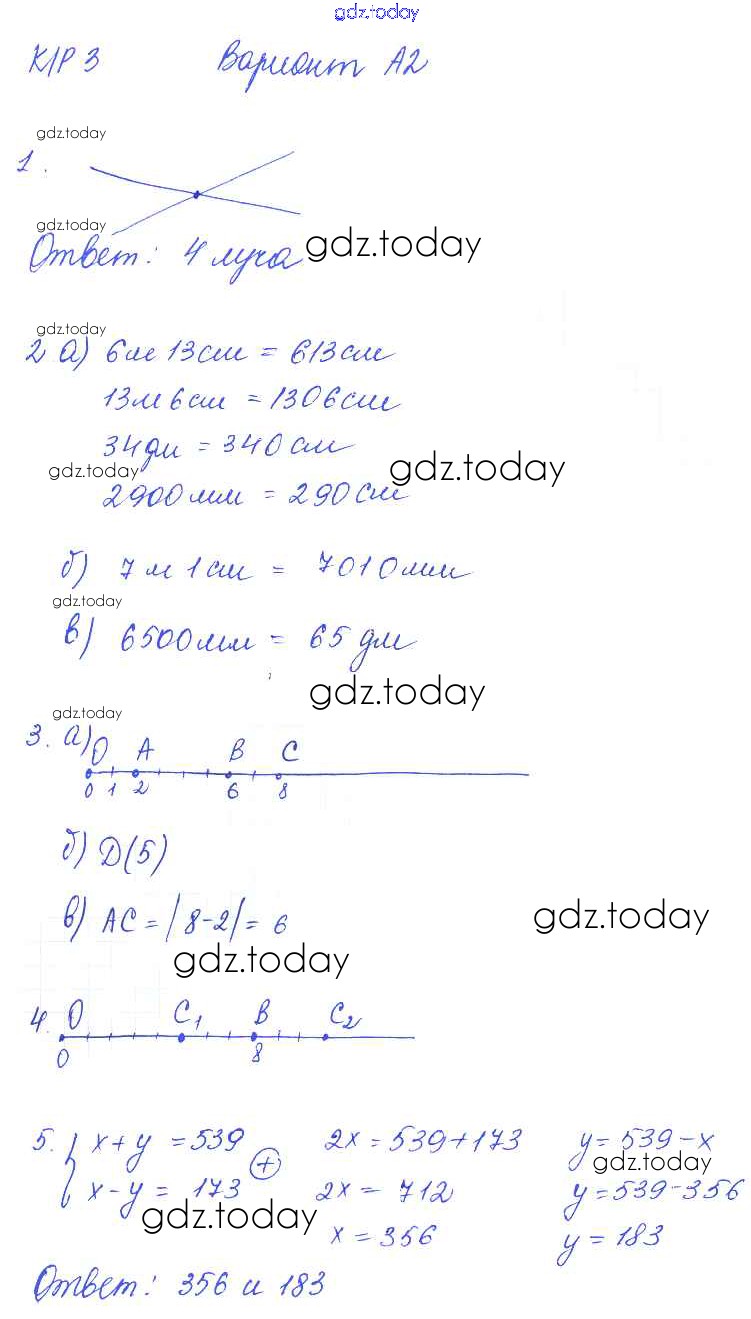 gdz.today
К/Р 3 Вариант А2
gdz.today
1.
gdz.today
Ответ: 4 луча gdz.today
gdz.today
2 а) 6м 13см = 613см
13м 6см = 1306см
34дм = 340см
gdz.today gdz.today
2900мм = 290см
б) 7м 1см = 7010мм
gdz.today
в) 6500мм = 65 дм
gdz.today
gdz.today
3. а) O A B C
0 1 2 6 8
б) D(5)
в) AC = |8-2| = 6 gdz.today
gdz.today
4. O C1 B C2
0 8
5. { x+y = 539 2x = 539+173 y = 539-x
x-y = 173 ⊕ 2x = 712 gdz.today
gdz.today x = 356 y = 539-356
y = 183
Ответ: 356 и 183